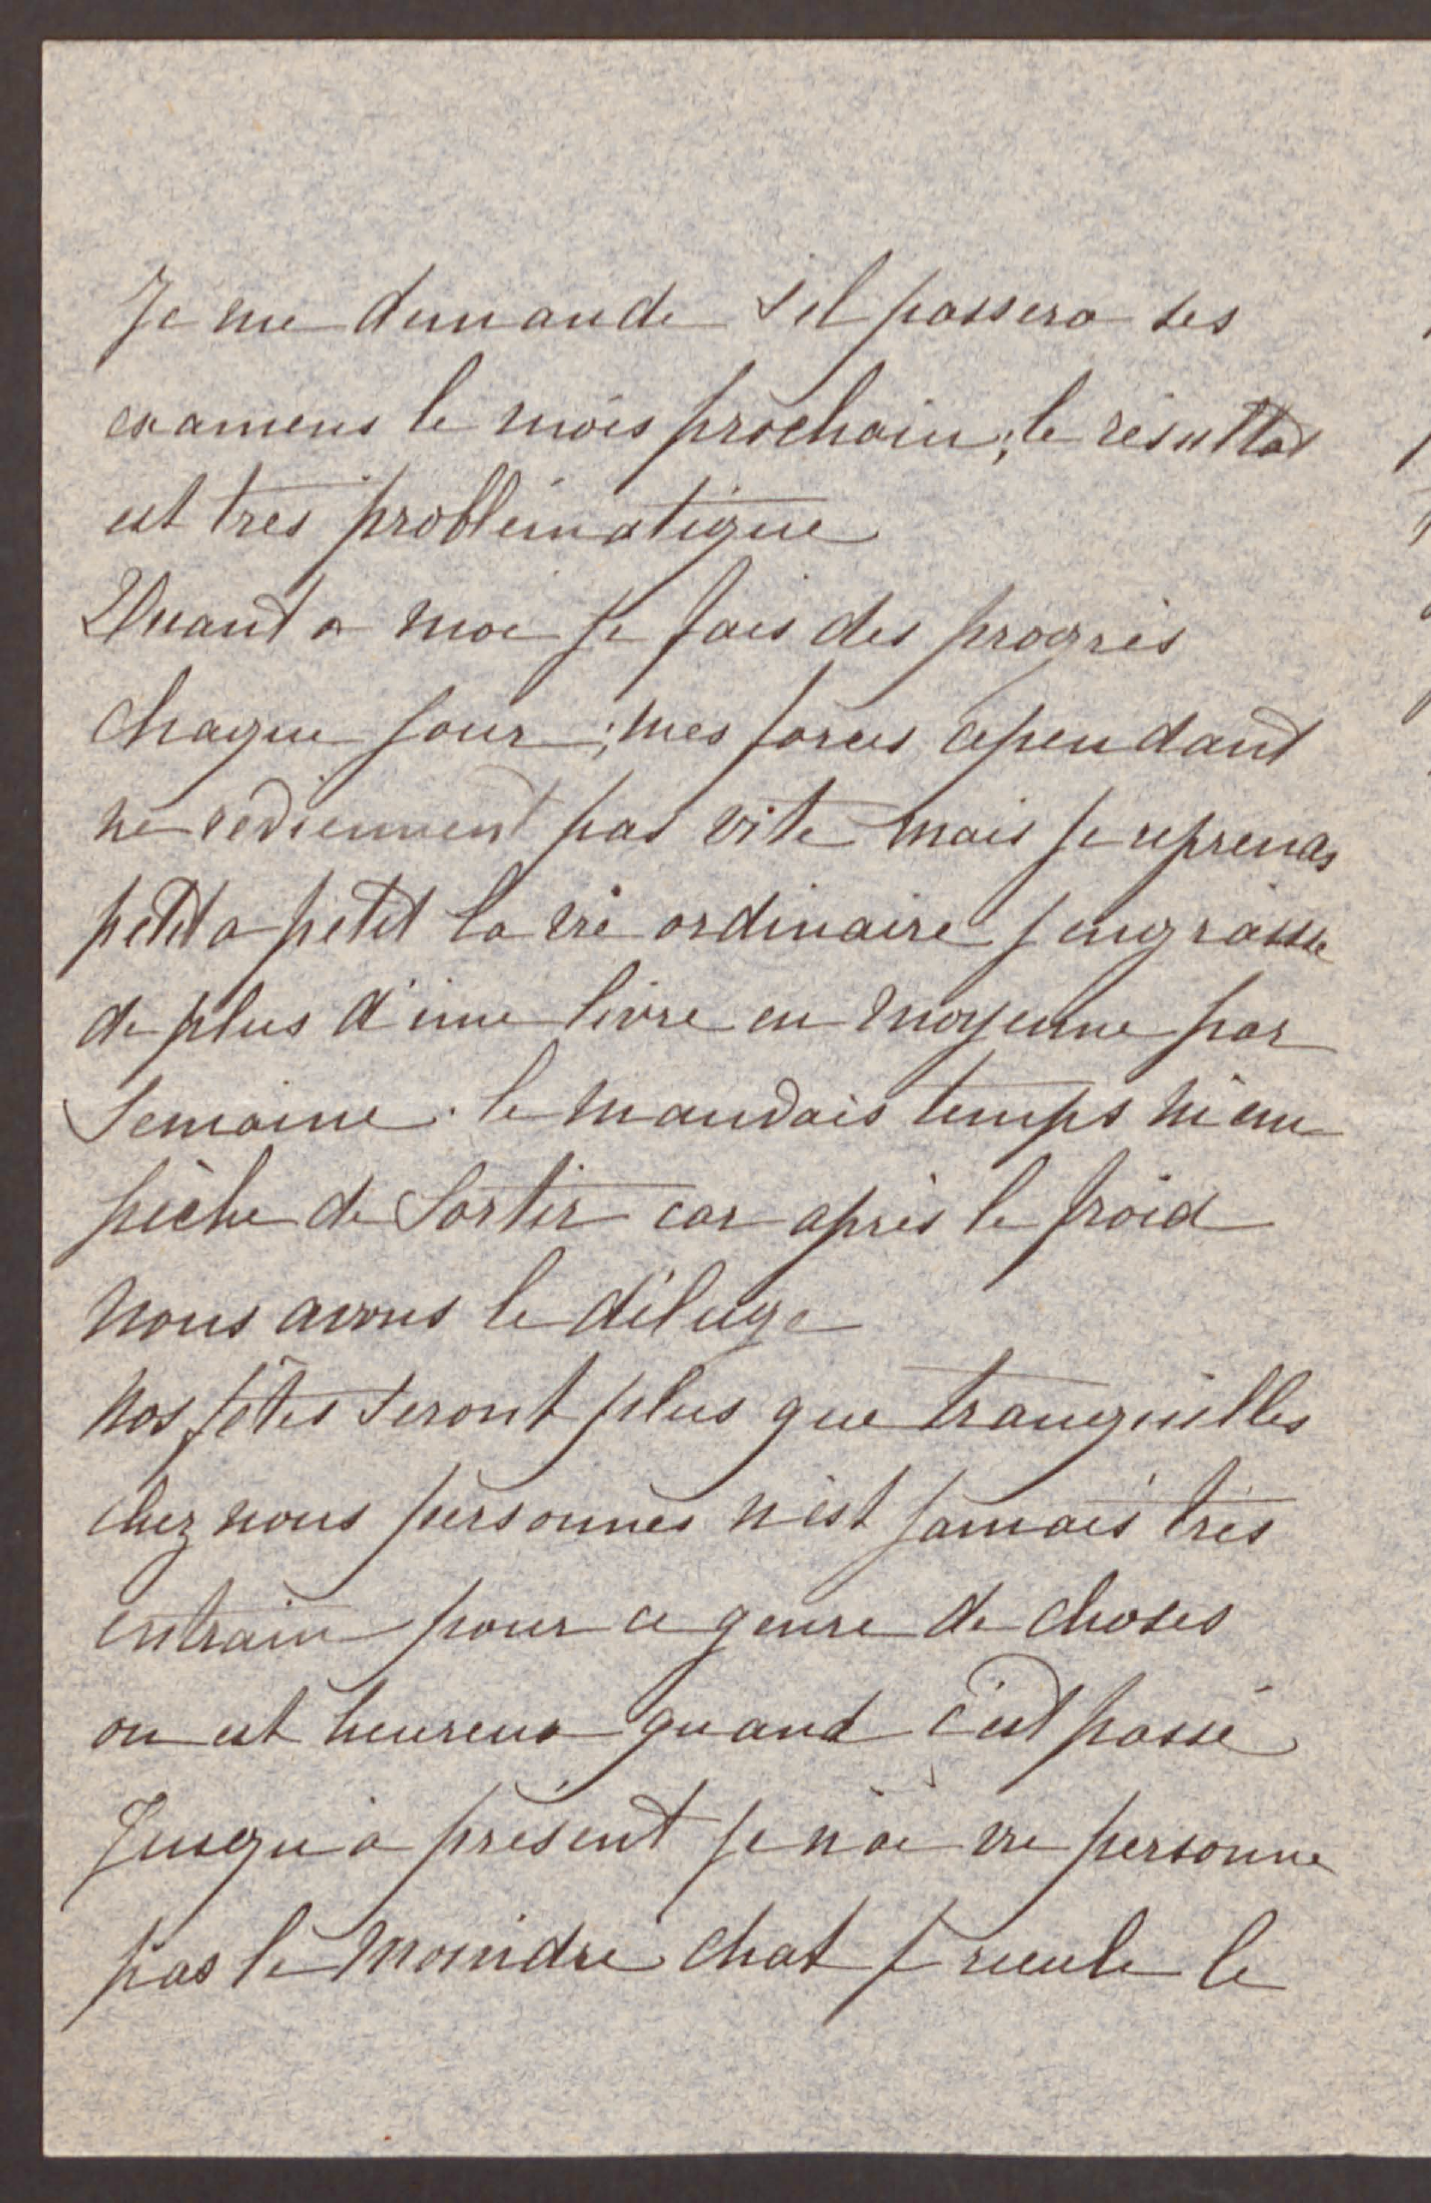 Je me demande s'il passera ses
examens le mois prochain; le résultat
est très problématique
Quant a moi je fais des progrès
chaque jour; mes forces cependant
ne reviennent pas vite mais je reprends
petit a petit la vie ordinaire j engraisse
de plus d'une livre en moyenne par
Semaine. le mauvais temps m'em
pèche de Sortir car après le froid
nous avons le déluge
Nos fêtes seront plus que tranquilles
chez nous personnes n'est jamais très
entrain pour ce genre de choses
on est heureux quand c'est passé
Jusqu'à présent je n'ai vu personne
pas le moindre chat je recule le